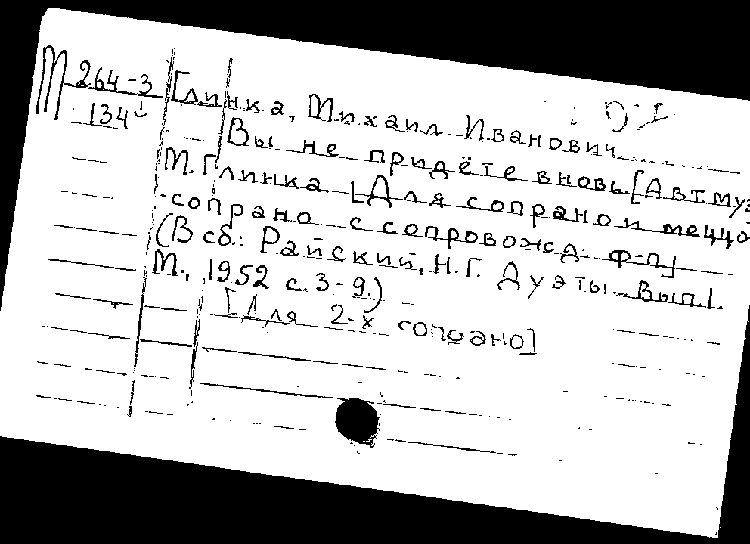 М 264-3
134
Глинка, Михаил Иванович
Вы не придёте вновь [Авт. муз.
М. Глинка [Для сопрано и меццо
-сопрано с сопровожд. ф-п]
(В сб.: Райский, Н.Г. Дуэты. Вып.I.
М., 1952 с. 3-9.)
[Для 2-х сопрано]